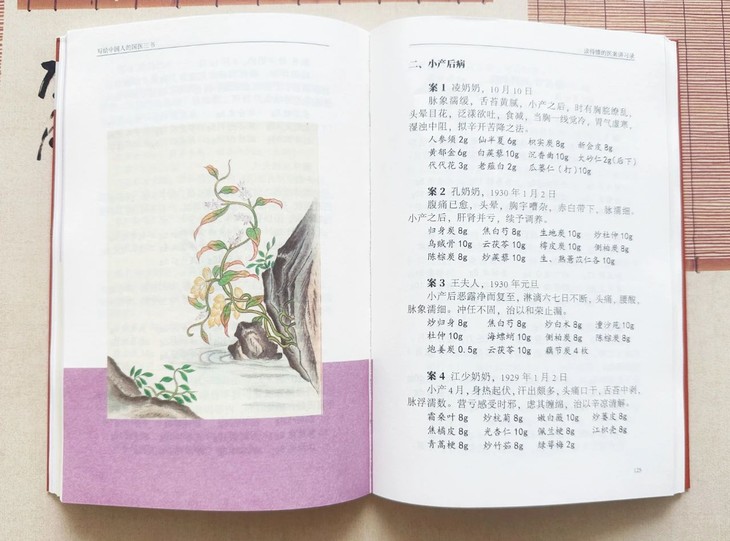 写给中国人的国医三书
二、小产后病
案 1 凌奶奶，10 月 10 日
脉象濡缓，舌苔黄腻，小产之后，时有胸脘疼乱，
头晕目花，泛漾欲吐，食减，当胸一线觉冷，胃气虚寒，
湿浊中阻，拟辛开苦降之法。
人参须 2g 仙半夏 6g 枳实炭 8g 新会皮 8g
黄郁金 6g 白蒺藜 10g 沉香曲 10g 大砂仁 2g(后下)
代代花 3g 老薤白 2g 瓜蒌仁（打）10g
案 2 孔奶奶，1930 年 1 月 2 日
腹痛已愈，头晕，胸字嘈杂，赤白带下，脉濡细。
小产之后，肝肾并亏，续予调养。
归身炭 8g 焦白芍 8g 生地炭 10g 炒杜仲 10g
乌贼骨 10g 云茯苓 10g 樗皮炭 10g 侧柏炭 8g
陈棕炭 8g 炒蒺藜 10g 生、熟薏苡仁各 10g
案 3 王夫人，1930 年元旦
小产后恶露净而复至，淋漓六七日不断，头痛，腰酸，
脉象濡细。冲任不固，治以和荣止漏。
炒归身 8g 焦白芍 8g 炒白术 8g 潼沙苑 10g
杜仲 10g 海螵蛸 10g 侧柏炭 8g 陈棕炭 8g
炮姜炭 0.5g 云茯苓 10g 藕节炭 4 枚
案 4 江少奶奶，1929 年 1 月 2 日
小产 4 月，身热起伏，汗出颇多，头痛口干，舌苔中剥，
脉浮濡数。营亏感受时邪，虑其缠绵，治以辛凉清解。
霜桑叶 8g 炒杭菊 8g 嫩白薇 10g 炒蒌皮 8g
焦橘皮 8g 光杏仁 10g 佩兰梗 8g 江枳壳 8g
青蒿梗 8g 炒竹茹 8g 绿萼梅 2g